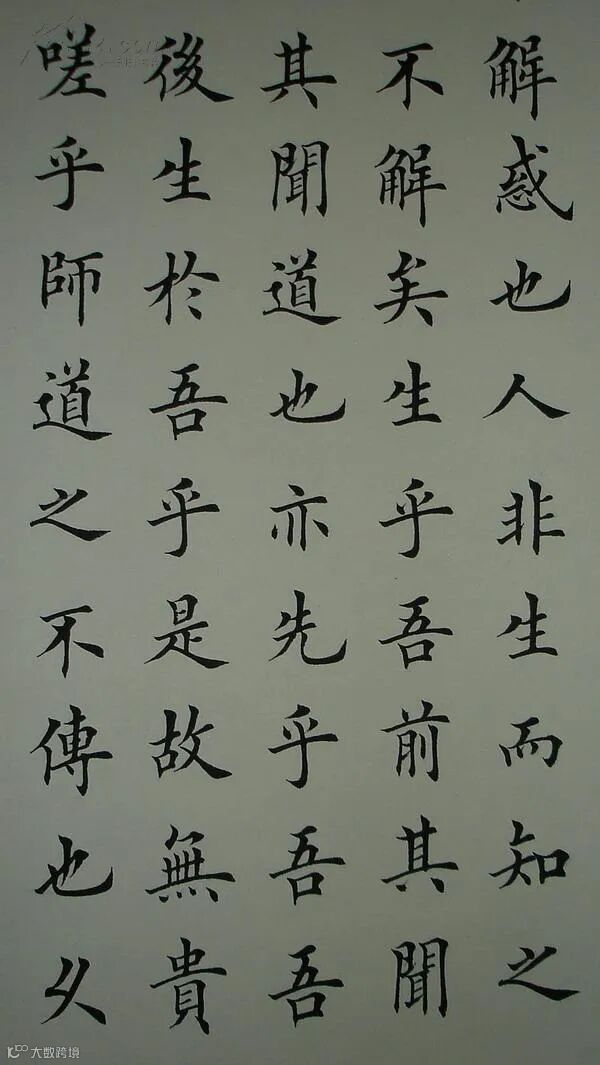 解惑也人非生而知之
不解矣生乎吾前其聞
其聞道也亦先乎吾吾
後生於吾乎是故無貴
嗟乎師道之不傳也久
大数跨境